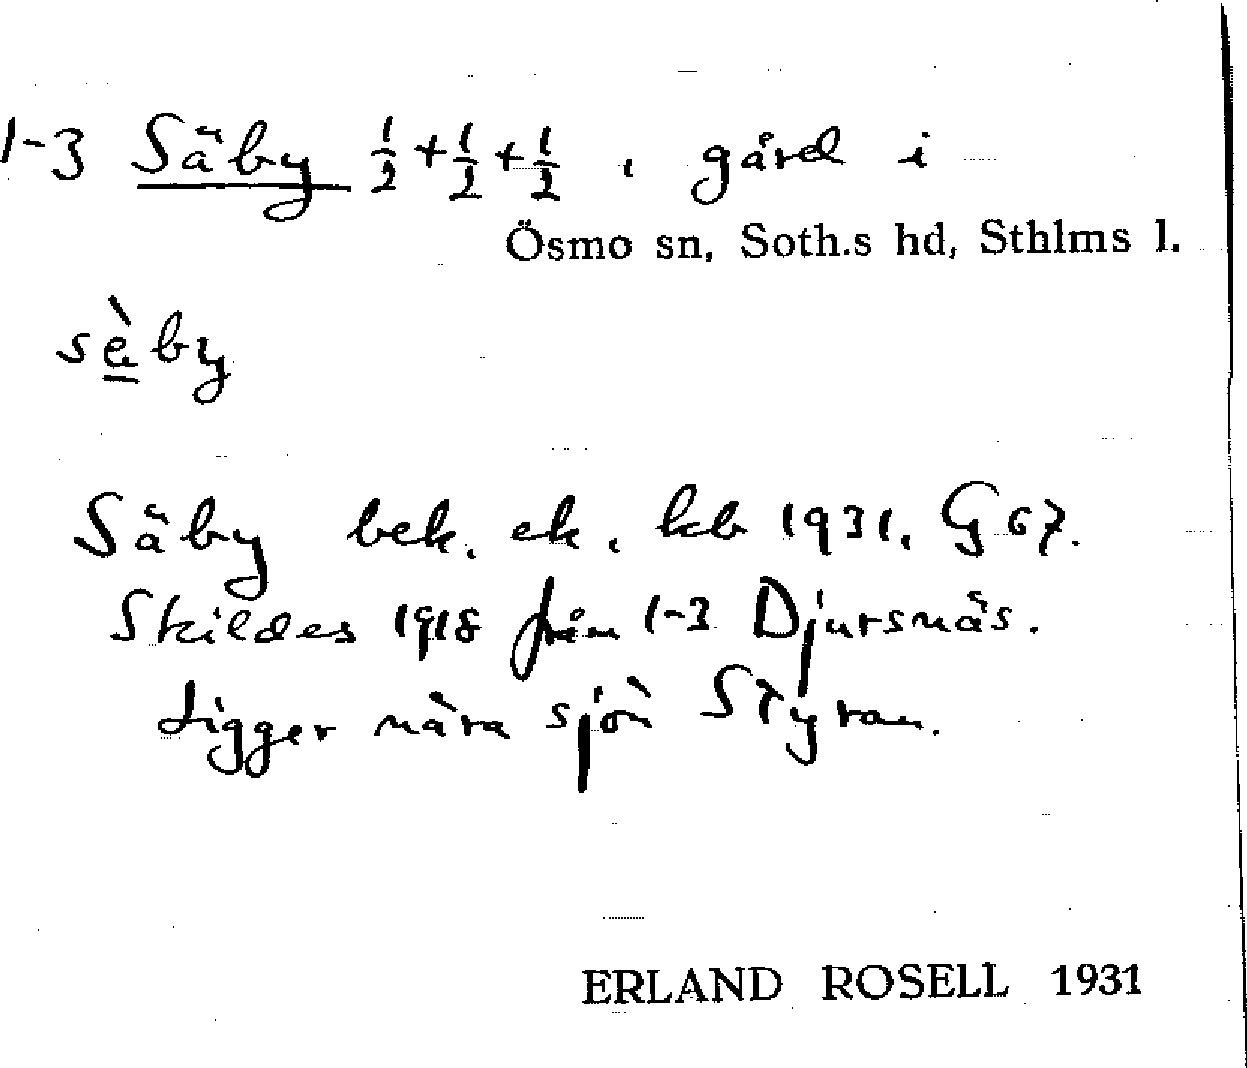 1-3 Säby ½+½+½, gård i
Ösmo sn, Soth.s hd, Sthlms l.
sè̱by
Säby bek. ek., kb 1931, G 67.
Skildes 1918 från 1-3 Djursnäs.
Ligger nära sjön Styran.
ERLAND ROSELL 1931